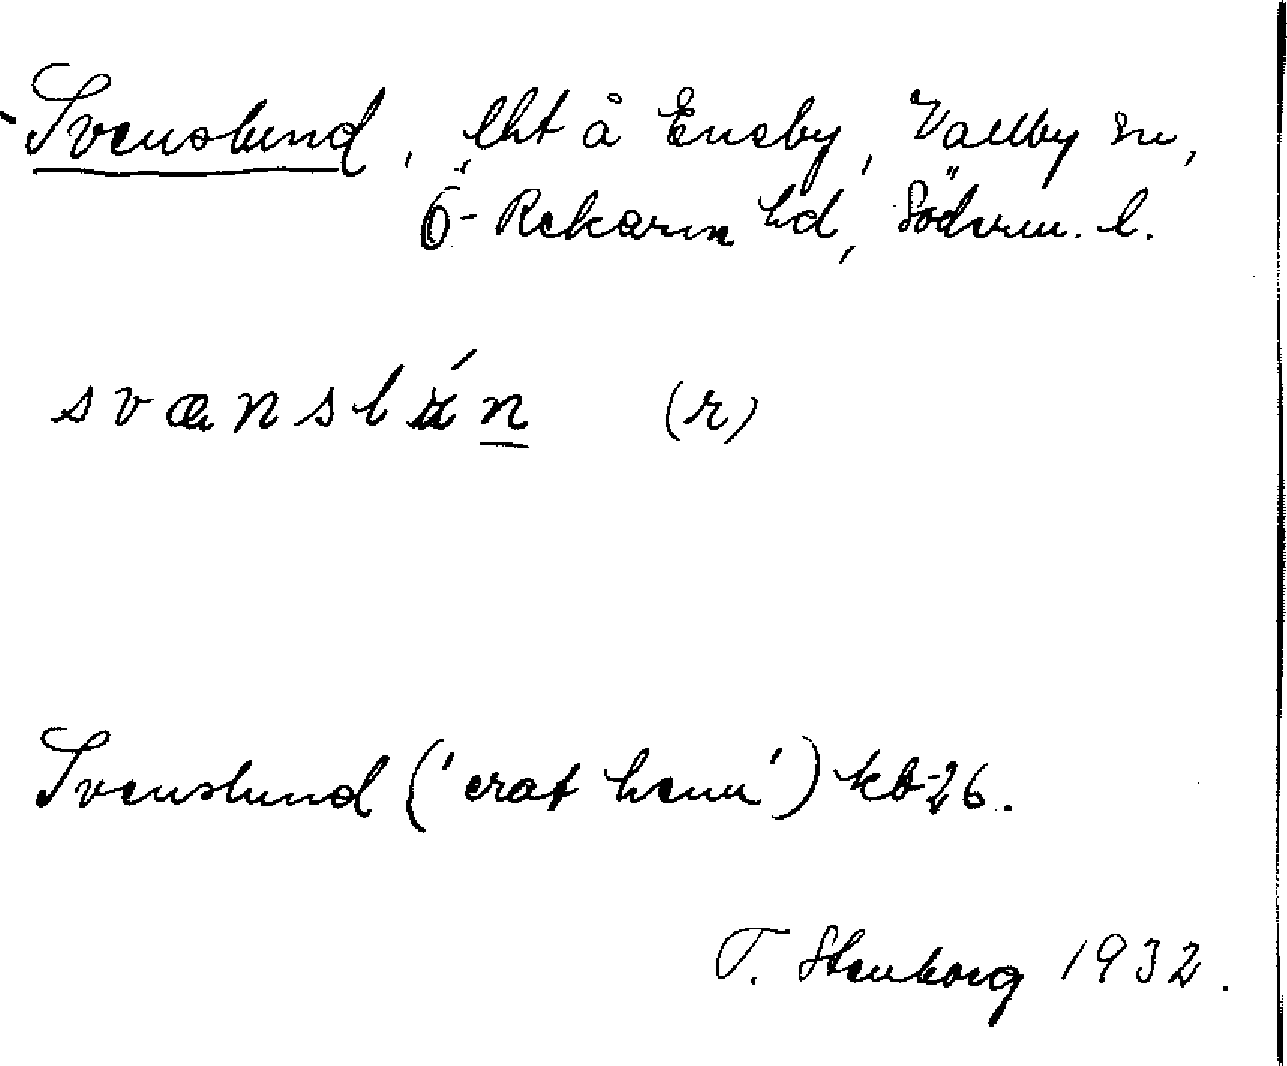 Svenslund, lht å Eneby, Vallby sn,
Ö-Rekarne hd, Söderm. l.
svænslún (r)
Svenslund ('crat hemn') kb-26.
T. Stenborg 1932.